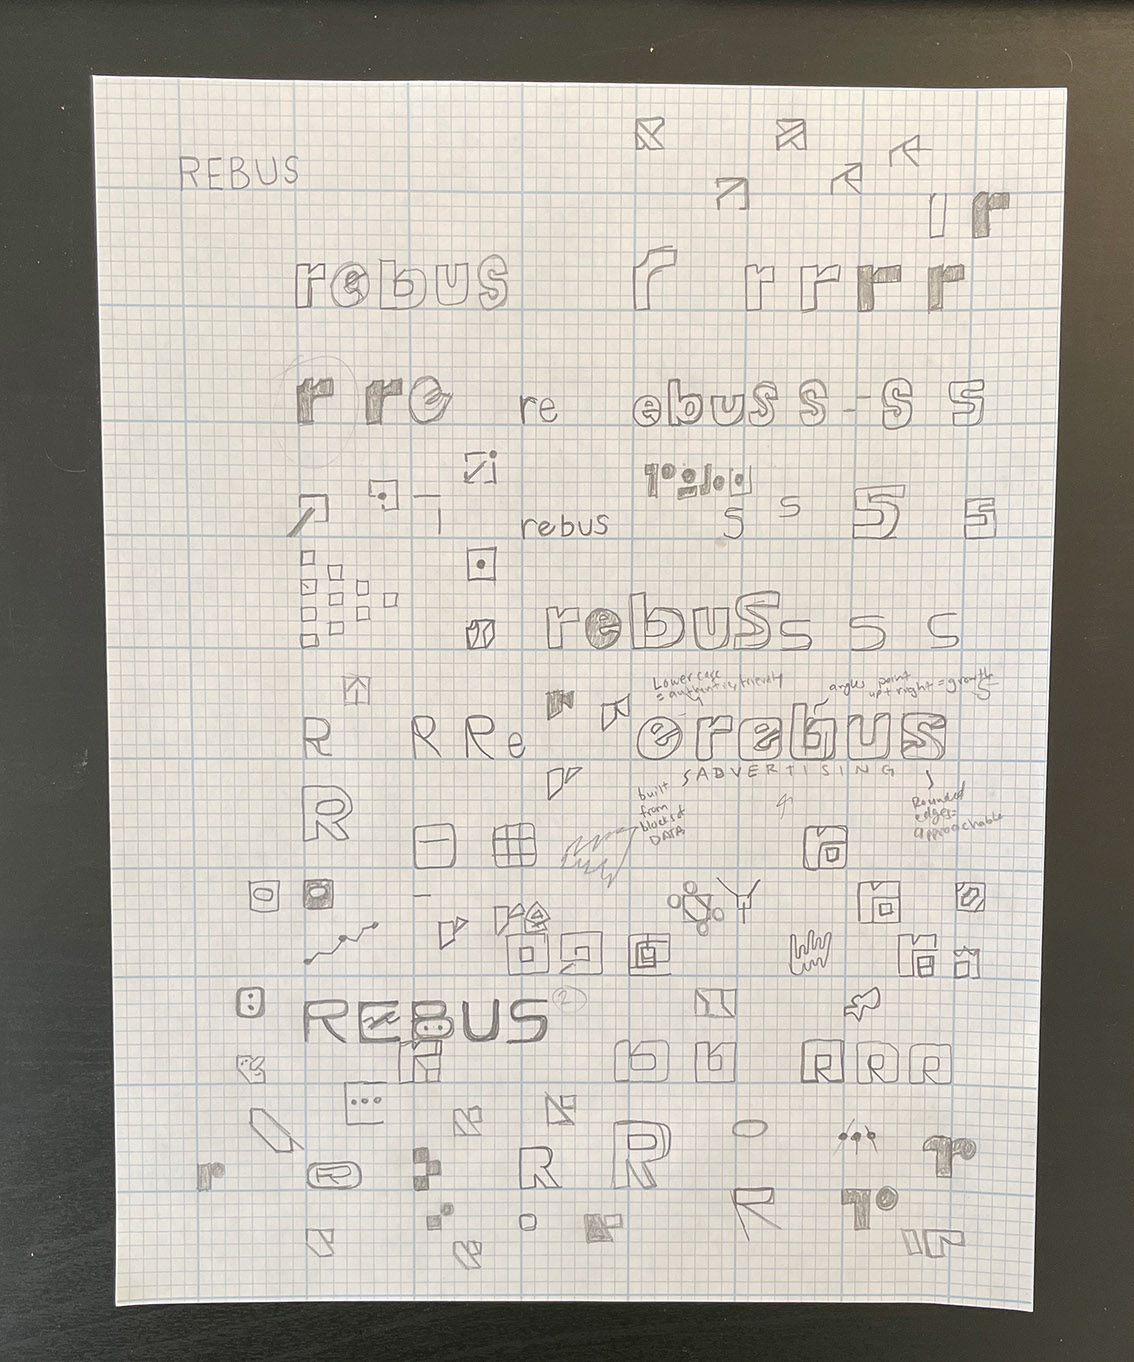 REBUS
r
rebus
r r r r r
r re
re
ebuss - s s
rebus
s s S s
rebus s s s
Lower case
= authentic, friendly
angles point
up + right = growth
R
R Re
erebus
ADVERTISING
built
from
blocks of
DATA
Rounded
edges =
approachable
R
REBUS 2
R R R
r
R
R
R
r
r